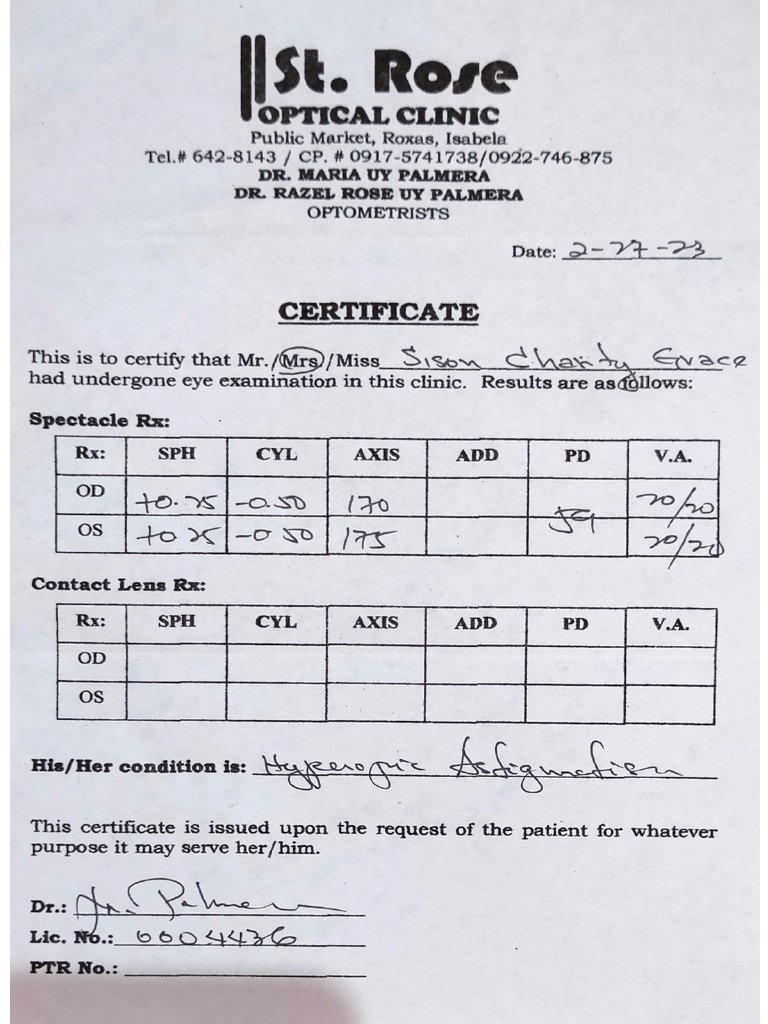 St. Rose
OPTICAL CLINIC
Public Market, Roxas, Isabela
Tel.# 642-8143 / CP. # 0917-5741738/0922-746-875
DR. MARIA UY PALMERA
DR. RAZEL ROSE UY PALMERA
OPTOMETRISTS
Date: 2-27-23
CERTIFICATE
This is to certify that Mr./Mrs/Miss Sison Charity Grace
had undergone eye examination in this clinic. Results are as follows:
Spectacle Rx:
Rx: SPH CYL AXIS ADD PD V.A.
OD +0.25 -0.50 170 20/20
59
OS +0 25 -0 50 175 20/20
Contact Lens Rx:
Rx: SPH CYL AXIS ADD PD V.A.
OD
OS
His/Her condition is: Hyperopic Astigmatism
This certificate is issued upon the request of the patient for whatever
purpose it may serve her/him.
Dr.: Palmera
Lic. No.: 0004436
PTR No.: